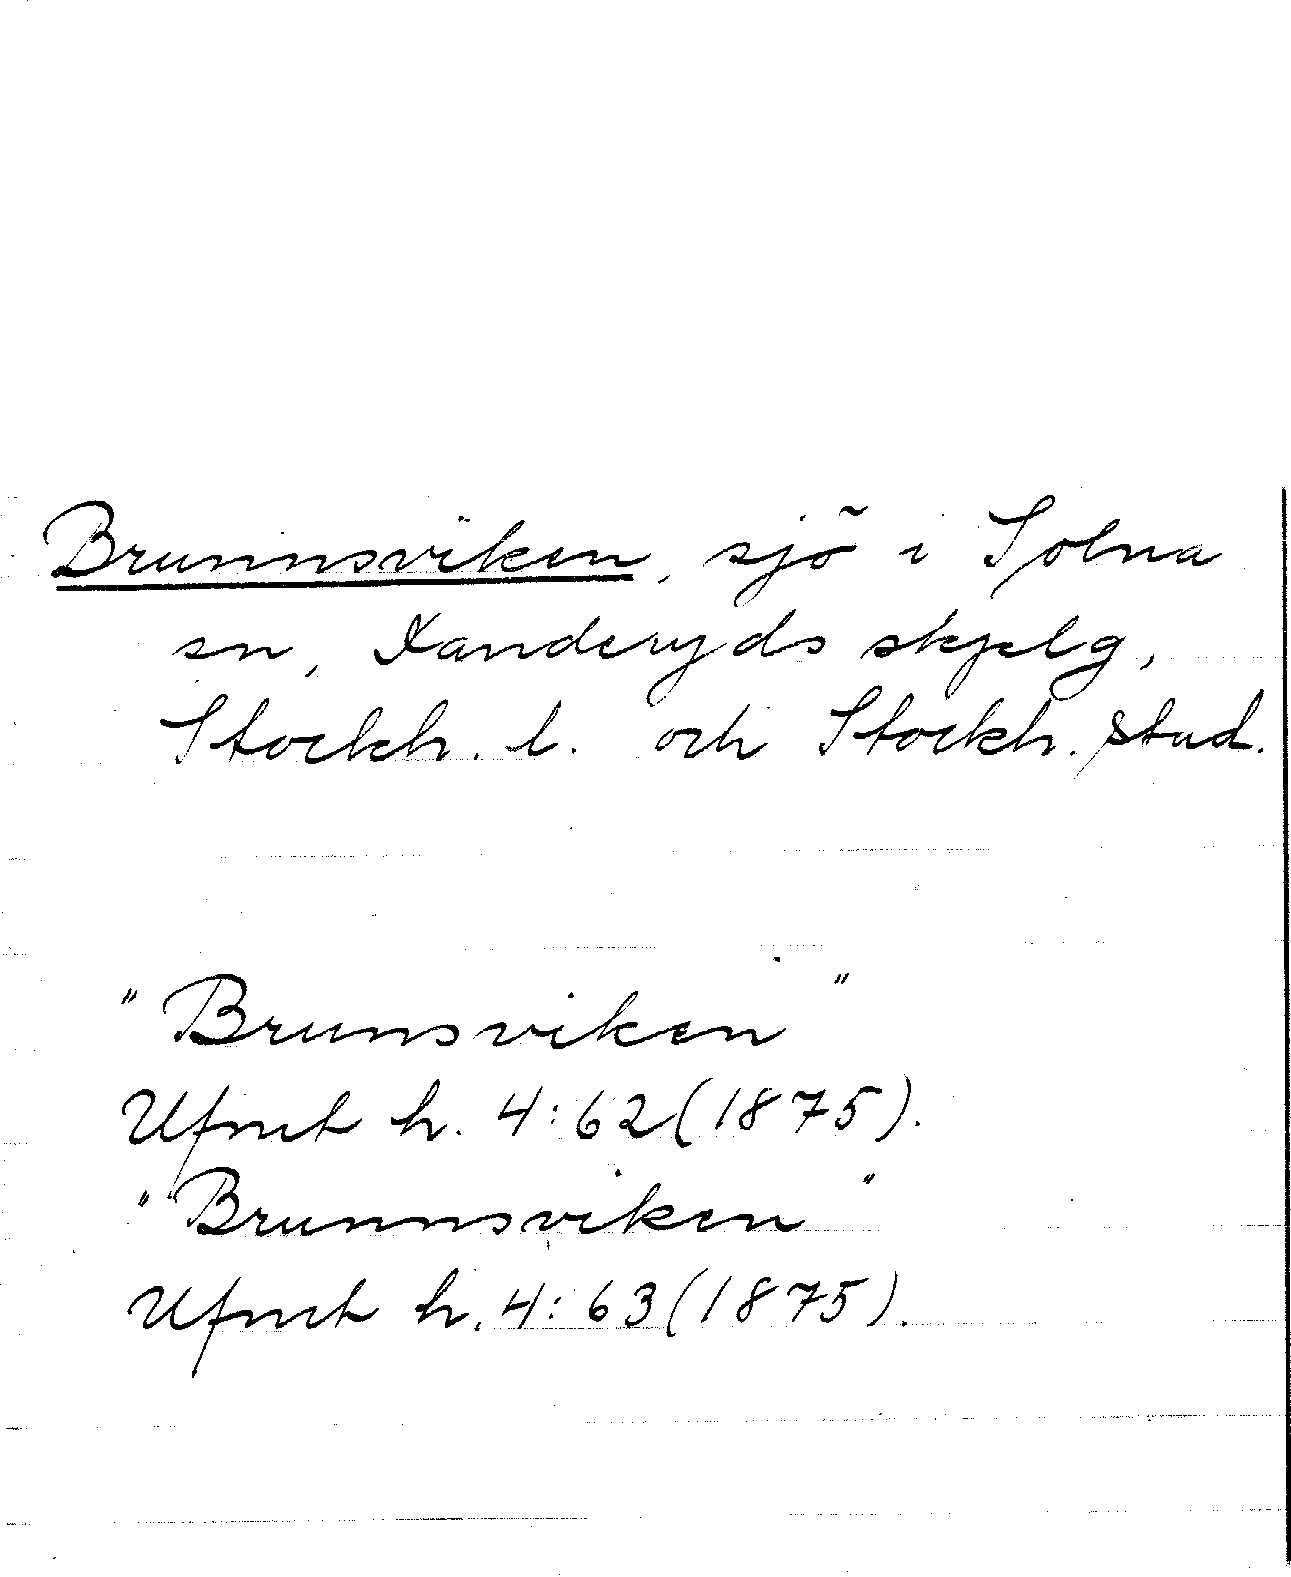 Brunnsviken, sjö i Solna
sn, Danderyds skjelg,
Stockh. l. och Stockh. stad.
"Brunsviken"
Ufmt h. 4:62(1875).
"Brunnsviken"
Ufmt h. 4:63(1875).